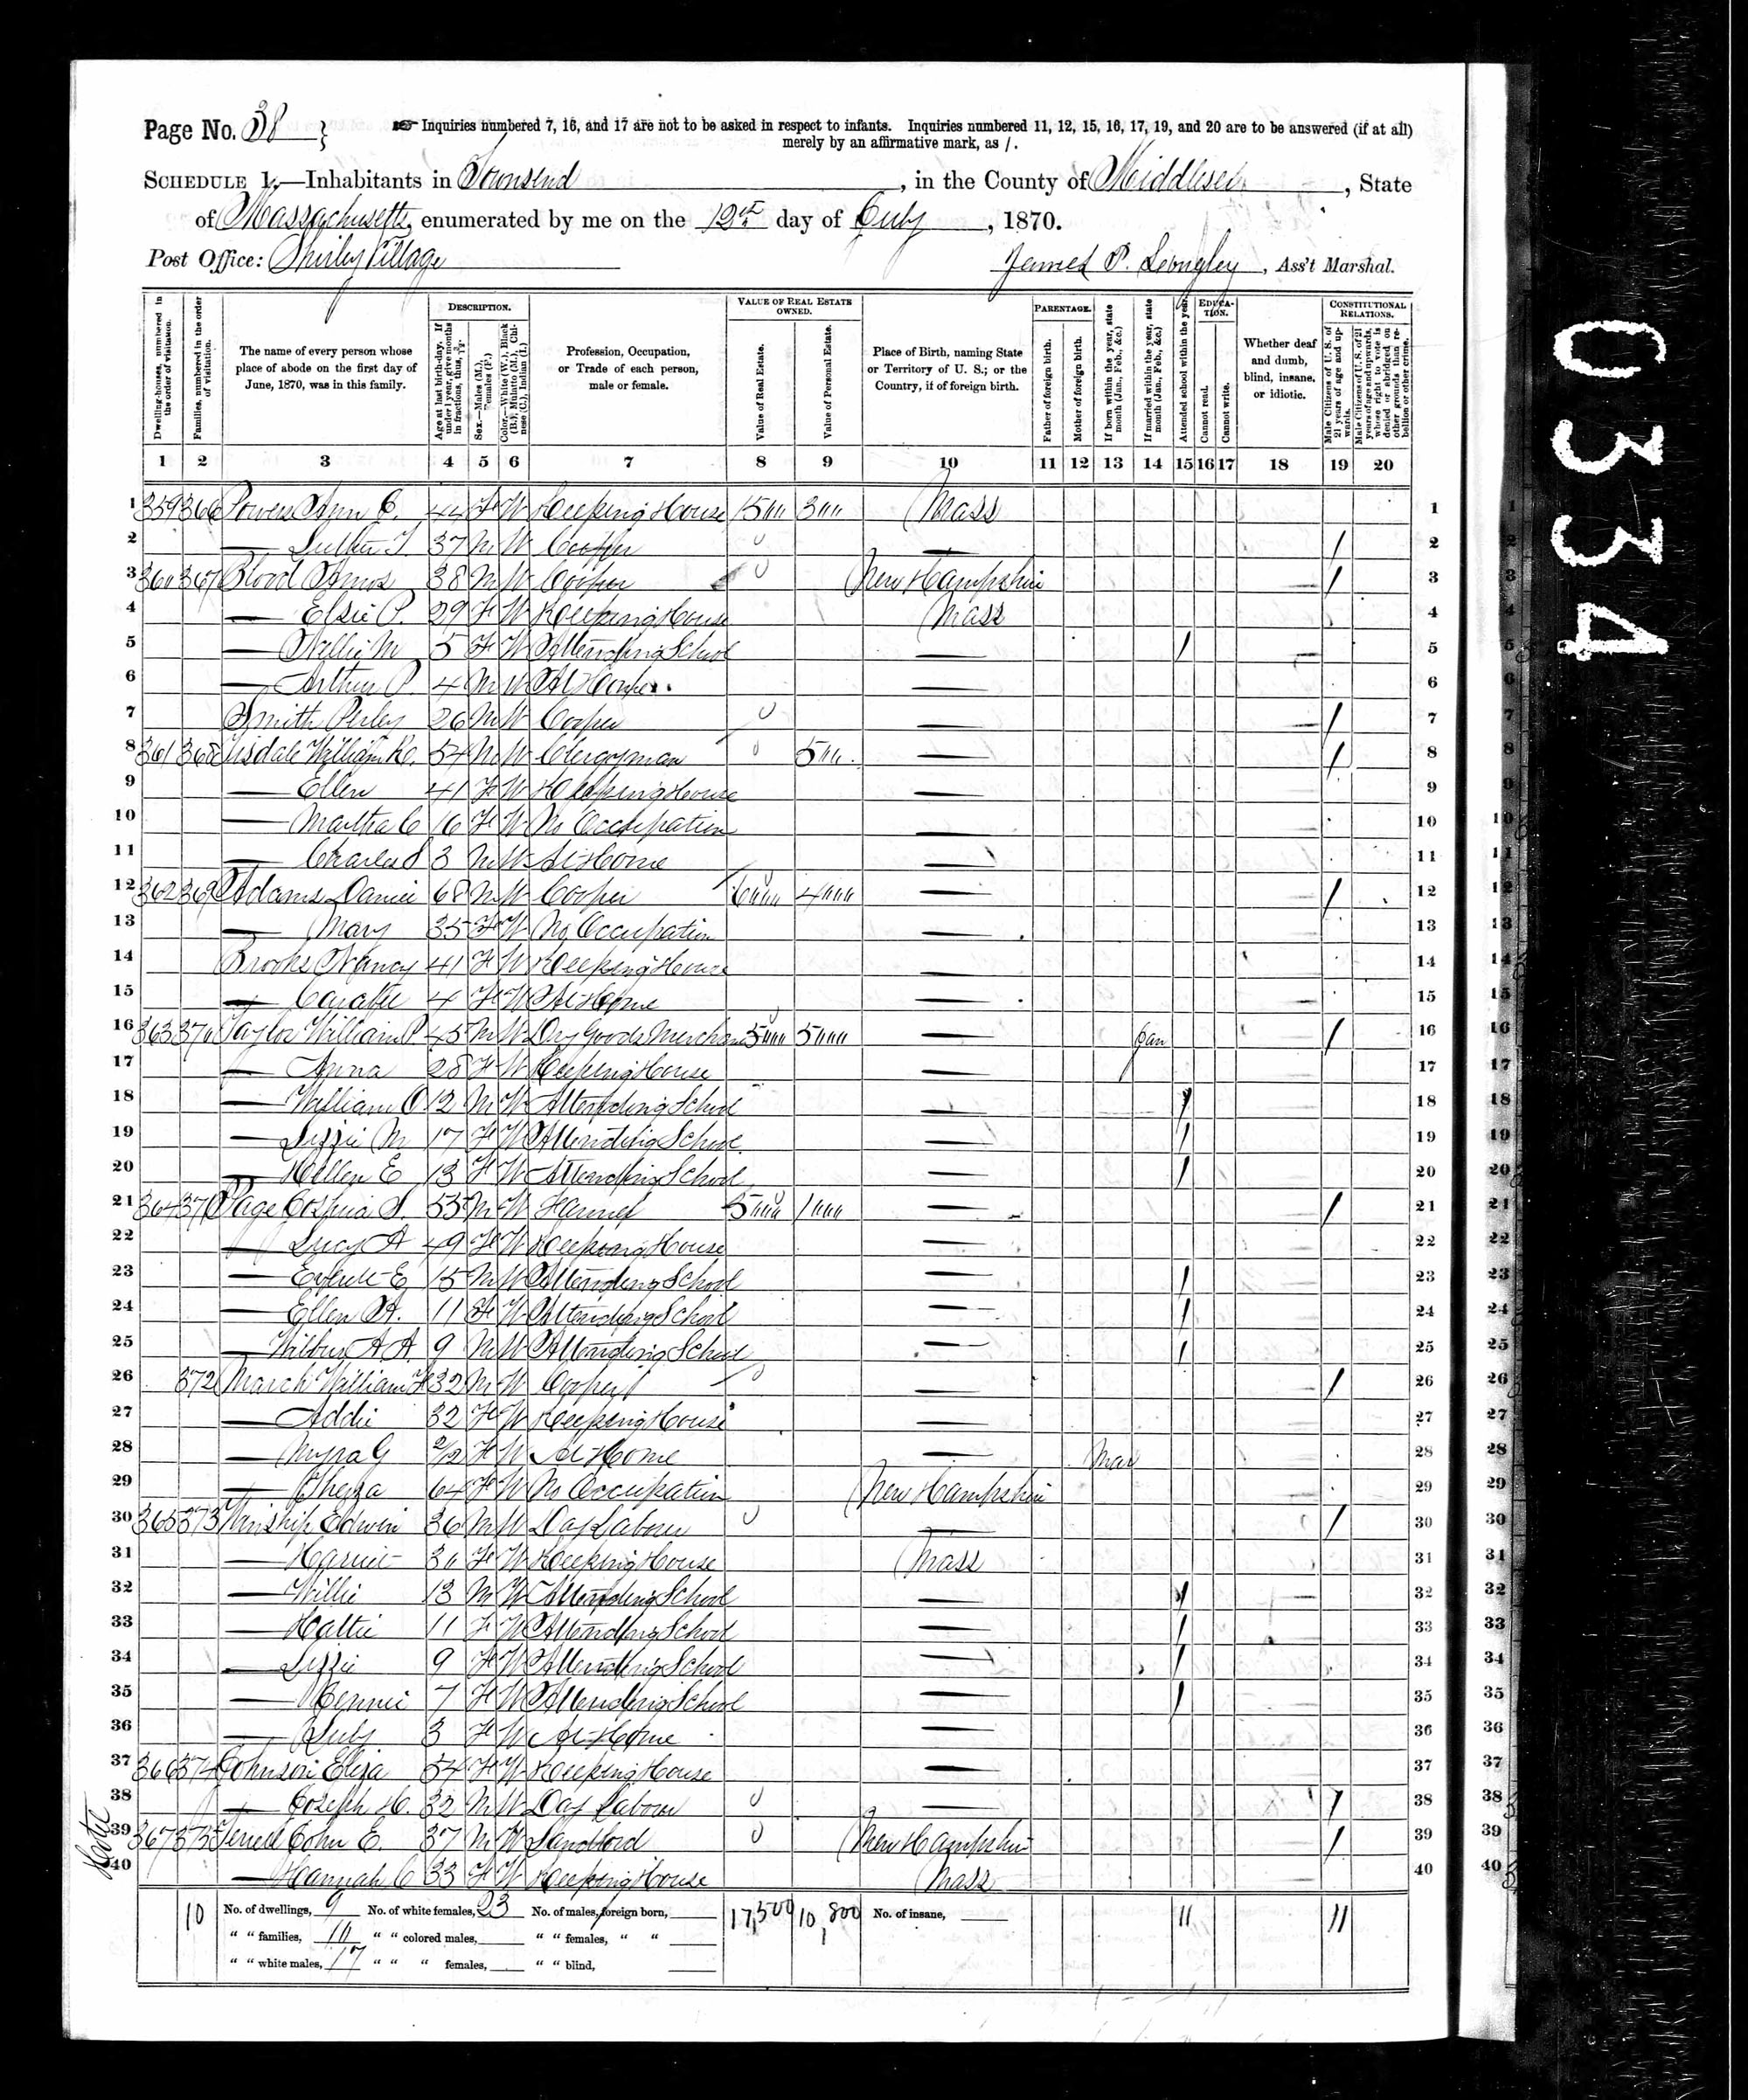 Page No. 38
Inquiries numbered 7, 16, and 17 are not to be asked in respect to infants. Inquiries numbered 11, 12, 15, 16, 17, 19, and 20 are to be answered (if at all)
merely by an affirmative mark, as /.
SCHEDULE 1.—Inhabitants in Townsend, in the County of Middlesex, State
of Massachusetts, enumerated by me on the 12th day of July, 1870.
Post Office: Shirley Village
James P. Longley, Ass't Marshal.
Dwelling-houses, numbered in the order of visitation.
Families, numbered in the order of visitation.
The name of every person whose place of abode on the first day of June, 1870, was in this family.
DESCRIPTION.
Age at last birth-day. If under 1 year, give months in fractions, thus, 3/12.
Sex.—Males (M.), Females (F.)
Color.—White (W.), Black (B.), Mulatto (M.), Chinese (C.), Indian (I.)
Profession, Occupation, or Trade of each person, male or female.
VALUE OF REAL ESTATE OWNED.
Value of Real Estate.
Value of Personal Estate.
Place of Birth, naming State or Territory of U. S.; or the Country, if of foreign birth.
PARENTAGE.
Father of foreign birth.
Mother of foreign birth.
If born within the year, state month (Jan., Feb., &c.)
If married within the year, state month (Jan., Feb., &c.)
Attended school within the year.
EDUCATION.
Cannot read.
Cannot write.
Whether deaf and dumb, blind, insane, or idiotic.
CONSTITUTIONAL RELATIONS.
Male Citizens of U. S. of 21 years of age and upwards.
Male Citizens of U. S. of 21 years of age and upwards, whose right to vote is denied or abridged on other grounds than rebellion or other crime.
1 2 3 4 5 6 7 8 9 10 11 12 13 14 15 16 17 18 19 20
1 359 366 Powers Ann 44 F W Keeping House 1500 300 Mass 1
2 — Luther 37 M W Cooper — / 2
3 360 367 Blood Amos 38 M W Cooper New Hampshire / 3
4 — Elsie P. 29 F W Keeping House Mass 4
5 — M 5 F W Attending School — / 5
6 — Arthur P. 4 M W At Home — 6
7 Smith Perley 26 M W Cooper — / 7
8 361 368 Tisdale William K. 54 M W Clergyman 500 — / 8
9 — Ellen 41 F W Keeping House — 9
10 — Martha C 16 F W No Occupation — 10
11 — Charles S 3 M W At Home — 11
12 362 369 Adams Daniel 68 M W Cooper 6000 4000 — / 12
13 — Mary 35 F W No Occupation — 13
14 Brooks Nancy 41 F W Keeping House — 14
15 — 4 F W At Home — 15
16 363 370 Taylor William P 45 M W Dry Goods Merchant 5000 5000 — Jan / 16
17 — Anna 28 F W Keeping House — 17
18 — William O 12 M W Attending School — / 18
19 — Lizzie M 17 F W Attending School — / 19
20 — Hellen E 13 F W Attending School — / 20
21 364 371 Page Joshua S. 53 M W Farmer 5000 1000 — / 21
22 — Lucy A 49 F W Keeping House — 22
23 — E 15 M W Attending School — / 23
24 — Ellen A. 11 F W Attending School — / 24
25 — Wilbur A A 9 M W Attending School — / 25
26 372 March William 32 M W Cooper — / 26
27 — Addie 32 F W Keeping House — 27
28 — Myra G 2/12 F W At Home — Mar 28
29 — 64 F W No Occupation New Hampshire 29
30 365 373 Winship Edwin 36 M W Day Labour — / 30
31 — Harriet 30 F W Keeping House Mass 31
32 — Willie 13 M W Attending School — / 32
33 — Hattie 11 F W Attending School — / 33
34 — Lizzie 9 F W Attending School — / 34
35 — 7 F W Attending School — / 35
36 — 3 F W At Home — 36
37 366 374 Johnson Eliza 54 F W Keeping House — 37
38 — Joseph H. 32 M W Day Labour — / 38
39 Hotel 367 375 John E. 37 M W Landlord New Hampshire / 39
40 — Hannah C 33 F W Keeping House Mass 40
10 No. of dwellings, 9 No. of white females, 23 No. of males, foreign born, 17,500 10,800 No. of insane, 11 11
" " families, 10 " " colored males, " " females, " "
" " white males, 17 " " " females, " " blind,
0334